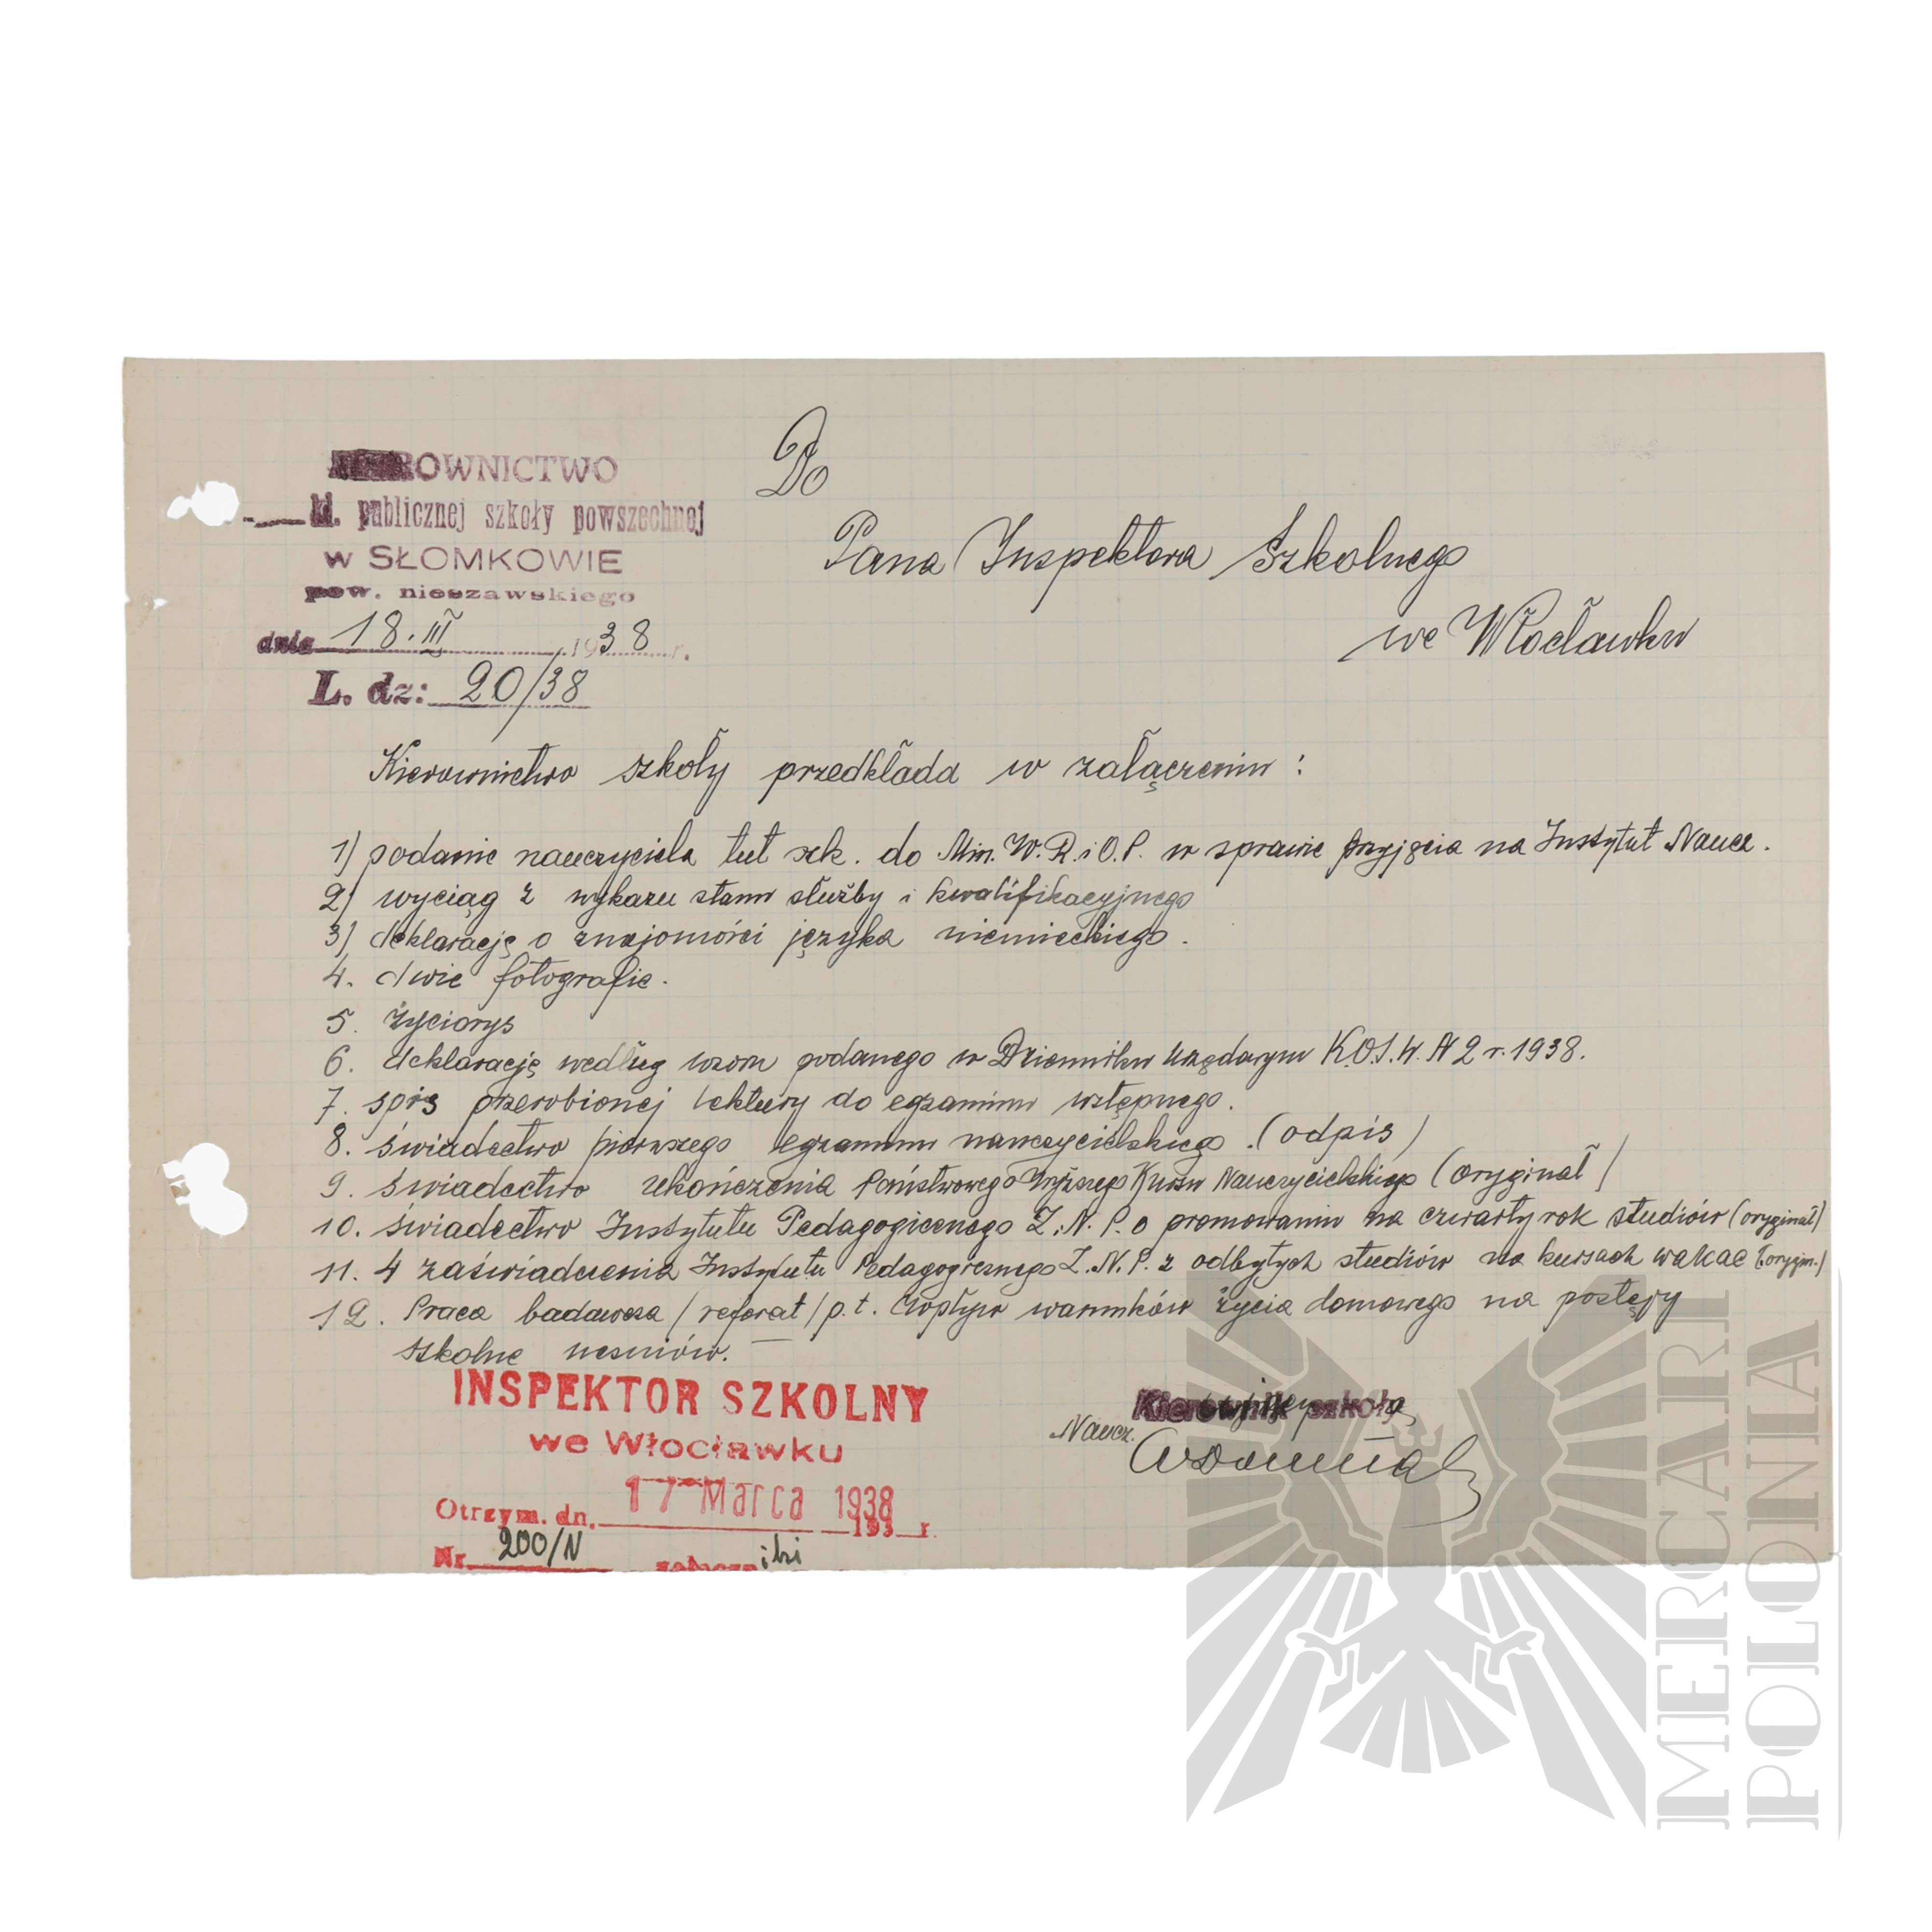 KIEROWNICTWO
kl. publicznej szkoły powszechnej
w SŁOMKOWIE
pow. nieszawskiego
dnia 18.III 1938 r.
L. dz: 20/38
Do
Pana Inspektora Szkolnego
we Włocławku
Kierownictwo szkoły przedkłada w załączeniu :
1) podanie nauczyciela tut szk. do Min. W.R.i O.P. w sprawie przyjęcia na Instytut Naucz.
2) wyciąg z wykazu stanu służby i kwalifikacyjnego
3) deklarację o znajomości języka niemieckiego.
4. dwie fotografie.
5. życiorys
6. deklarację według wzoru podanego w Dzienniku Urzędowym K.O.S.W. N 2 r. 1938.
7. spis przerobionej lektury do egzaminu wstępnego.
8. świadectwo pierwszego egzaminu nauczycielskiego. (odpis)
9. świadectwo ukończenia Państwowego Wyższego Kursu Nauczycielskiego (oryginał)
10. świadectwo Instytutu Pedagogicznego Z.N.P. o promowaniu na czwarty rok studiów (oryginał)
11. 4 zaświadczenia Instytutu Pedagogicznego Z.N.P. z odbytych studiów na kursach wakac (orygin.)
12. Praca badawcza /referat/ p.t. Wpływ warunków życia domowego na postępy
szkolne uczniów.
INSPEKTOR SZKOLNY
we Włocławku
Otrzym. dn. 17 Marca 1938
193 r.
Nr. 200/N
Kierownik szkoły
Naucz.
MERCARI
POLONIA